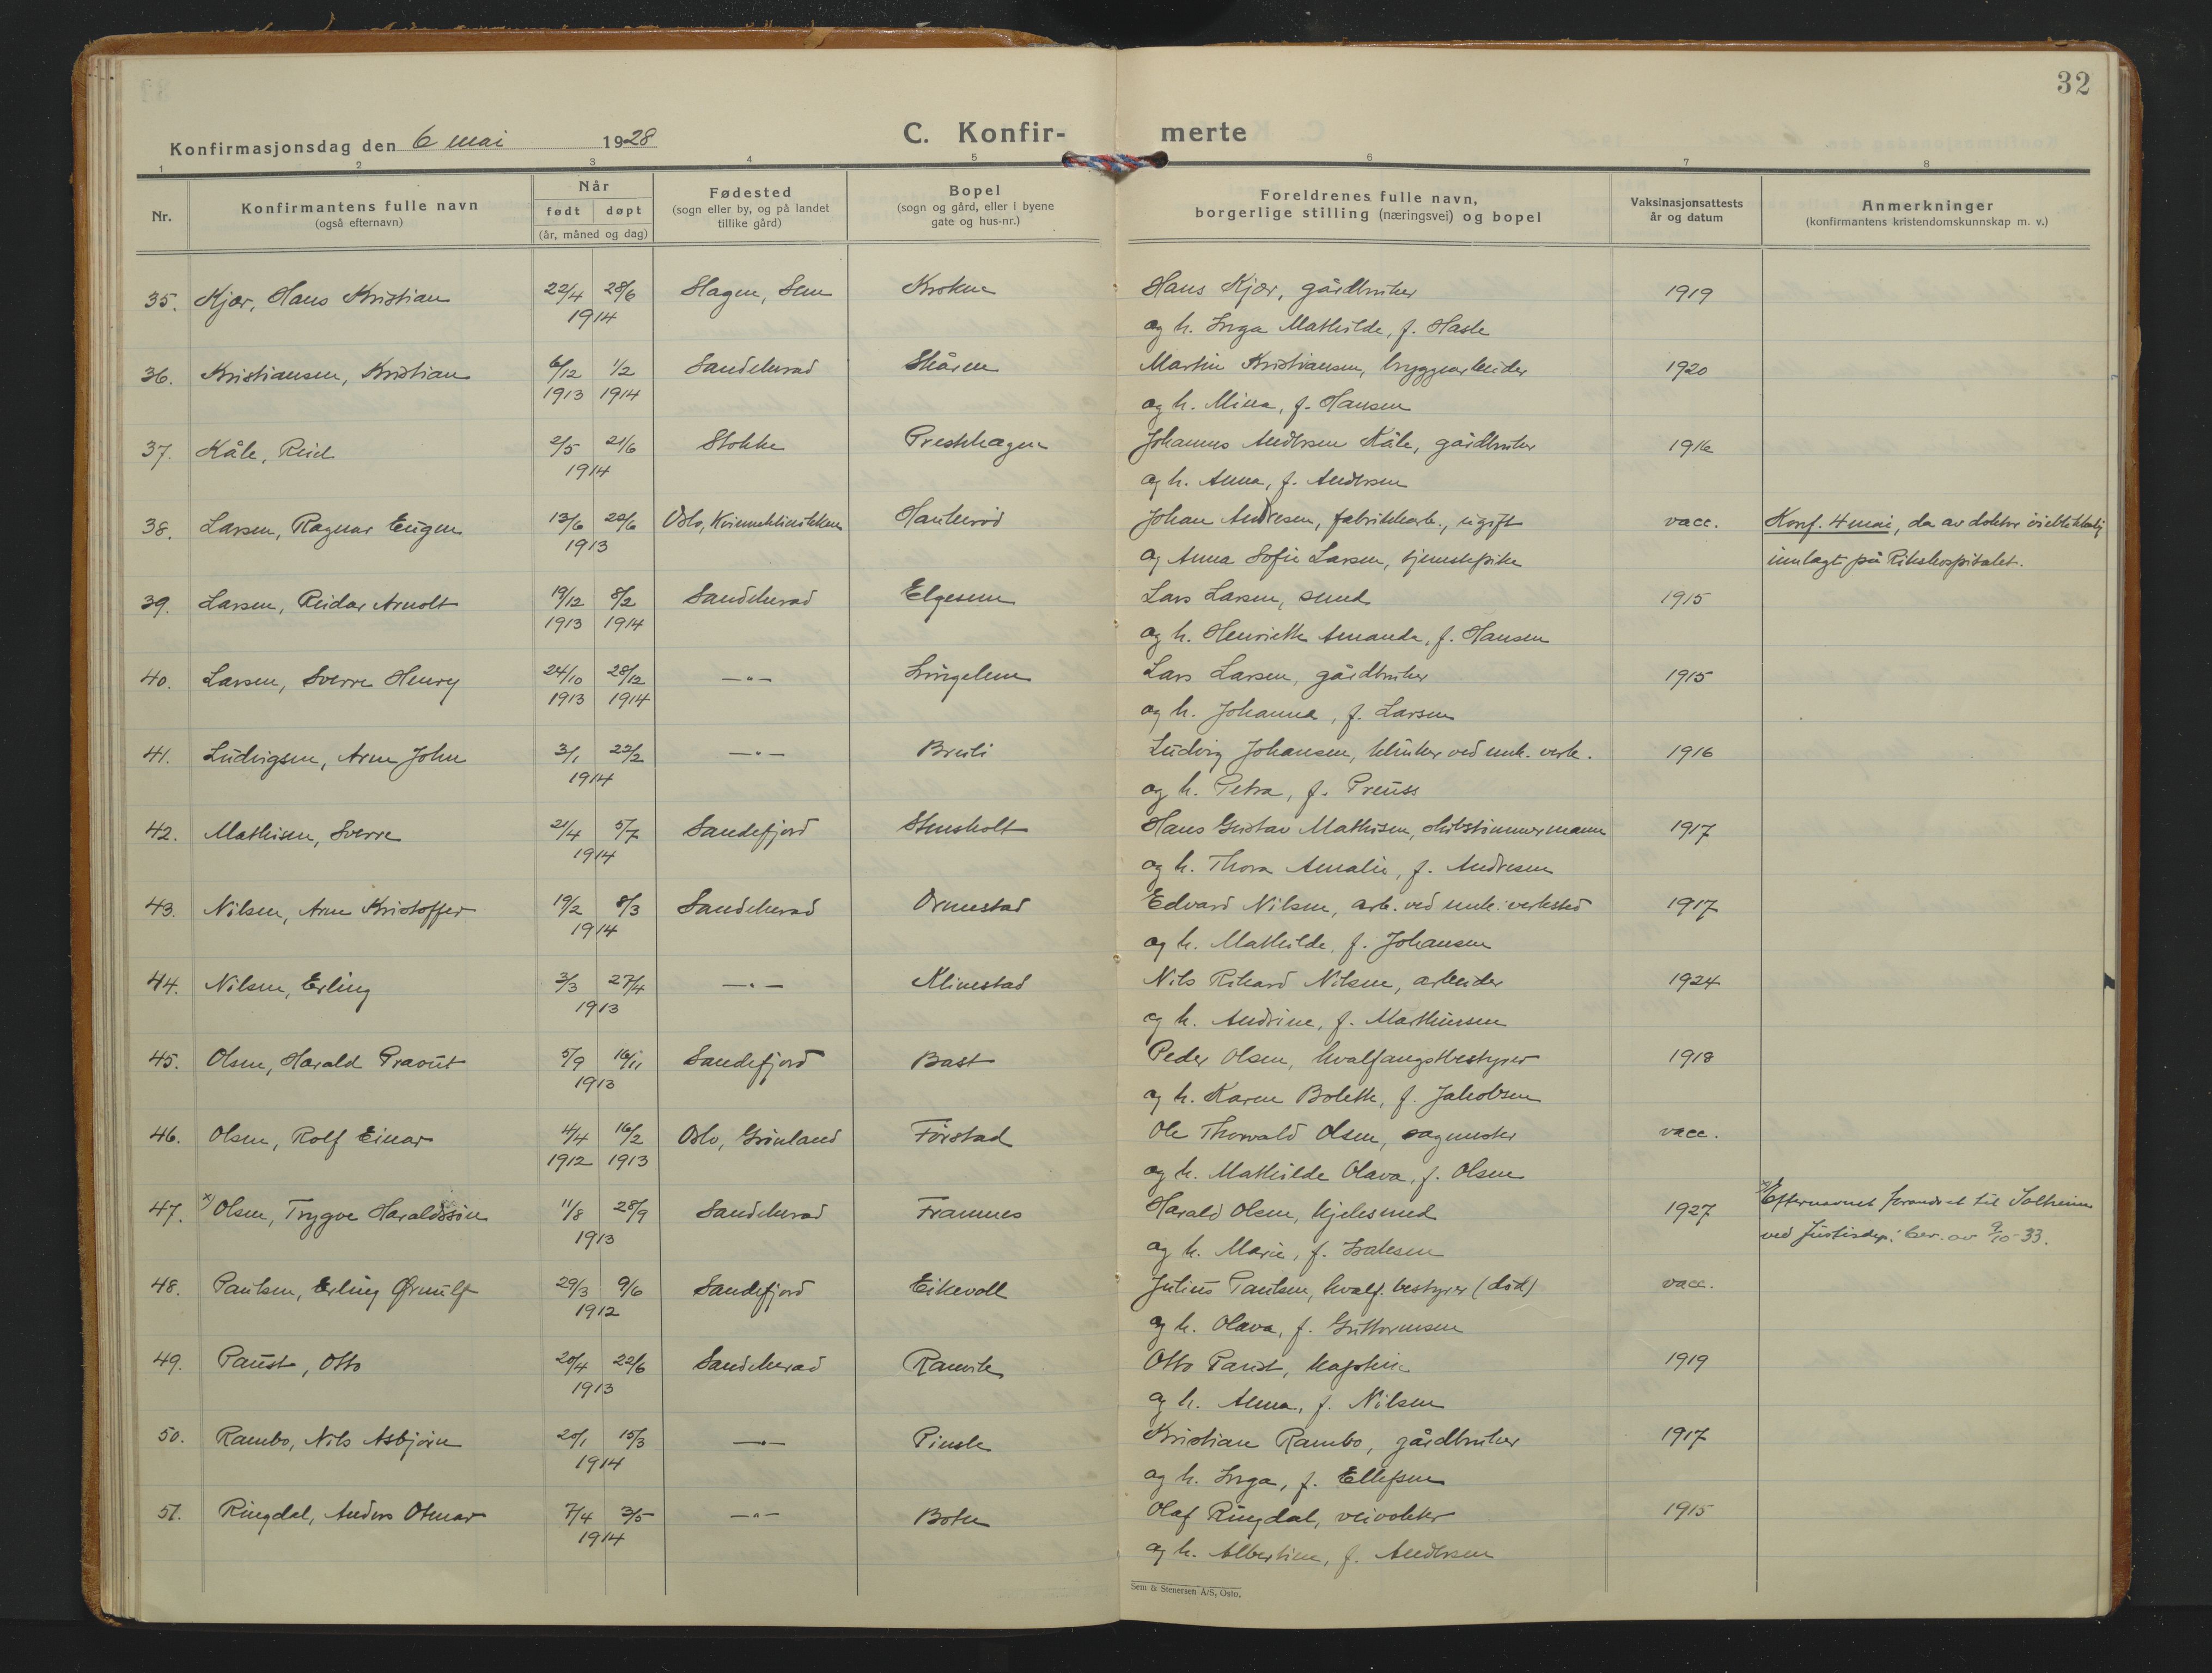 32
Konfirmasjonsdag den 6 mai 1928
C. Konfir- merte
1 2 3 4 5 6 7 8
Nr.
Konfirmantens fulle navn
(også efternavn)
Når
født døpt
(år, måned og dag)
Fødested
(sogn eller by, og på landet
tillike gård)
Bopel
(sogn og gård, eller i byene
gate og hus-nr.)
Foreldrenes fulle navn,
borgerlige stilling (næringsvei) og bopel
Vaksinasjonsattests
år og datum
Anmerkninger
(konfirmantens kristendomskunnskap m. v.)
35. Kjær, Hans Kristian 22/4 28/6 Slagen, Sem Kroken Hans Kjær, gårdbruker 1919
1914 og h. Inga Mathilde, f. Hasle
36. Kristiansen, Kristian 6/12 1/2 Sandeherad Skåren Martin Kristiansen, bryggearbeider 1920
1913 1914 og h. Mina, f. Hansen
37. Kåle, Reid 2/5 21/6 Stokke Presthagen Johannes Andersen Kåle, gårdbruker 1916
1914 og h. Anna, f. Andersen
38. Larsen, Ragnar Eugen 13/6 20/6 Oslo, Kvinneklinikken Haukerød Johan Andresen, fabrikkarb., ugift vacc. Konf. 4 mai, da av doktor øieblikkelig
1913 og Anna Sofie Larsen, tjenestepike innlagt på Rikshospitalet.
39. Larsen, Reidar Arnolt 19/12 8/2 Sandeherad Elgesem Lars Larsen, smed 1915
1913 1914 og h. Henriette Amanda, f. Hansen
40. Larsen, Sverre Henry 24/10 28/12 —"— Lingelem Lars Larsen, gårdbruker 1915
1913 1914 og h. Johanna, f. Larsen
41. Ludvigsen, Arne John 3/1 22/2 —"— Breili Ludvig Johansen, klinker ved mek. verk. 1916
1914 og h. Petra, f. Preuss
42. Mathisen, Sverre 21/4 5/7 Sandefjord Stensholt Hans Gustav Mathisen, skibstimmermann 1917
1914 og h. Thora Amalie, f. Andresen
43. Nilsen, Arne Kristoffer 19/2 8/3 Sandeherad Ormestad Edvard Nilsen, arb. ved mek. verksted 1917
1914 og h. Mathilde, f. Johansen
44. Nilsen, Erling 3/3 27/4 —"— Klinestad Nils Rikard Nilsen, arbeider 1924
1913 og h. Andrine, f. Marthinsen
45. Olsen, Harald Pravut 5/9 16/11 Sandefjord Bast Peder Olsen, hvalfangstbestyrer 1918
1913 og h. Karen Bolette, f. Jakobsen
46. Olsen, Rolf Einar 4/4 16/2 Oslo, Grønland Førstad Ole Thorvald Olsen, sagmester vacc.
1912 1913 og h. Mathilde Olava, f. Olsen
47. x) Olsen, Trygve Haraldssøn 11/8 28/9 Sandeherad Framnes Harald Olsen, kjelesmed 1927 x) Efternavnet forandret til Solheim
1913 og h. Marie, f. Isaksen ved Justisdep. bev. av 9/10-33.
48. Paulsen, Erling Ørnulf 29/3 9/6 Sandefjord Eikevoll Julius Paulsen, hvalf. bestyrer (død) vacc.
1912 og h. Olava, f. Guttormsen
49. Paust, Otto 20/4 22/6 Sandeherad Ranvik Otto Paust, kaptein 1919
1913 og h. Anna, f. Nilsen
50. Rambo, Nils Asbjørn 20/1 15/3 —"— Pinsle Kristian Rambo, gårdbruker 1917
1914 og h. Inga, f. Ellefsen
51. Ringdal, Anders Otmar 7/4 3/5 —"— Boten Olaf Ringdal, veivokter 1915
1914 og h. Albertine, f. Andersen
Sem & Stenersen A/S, Oslo.